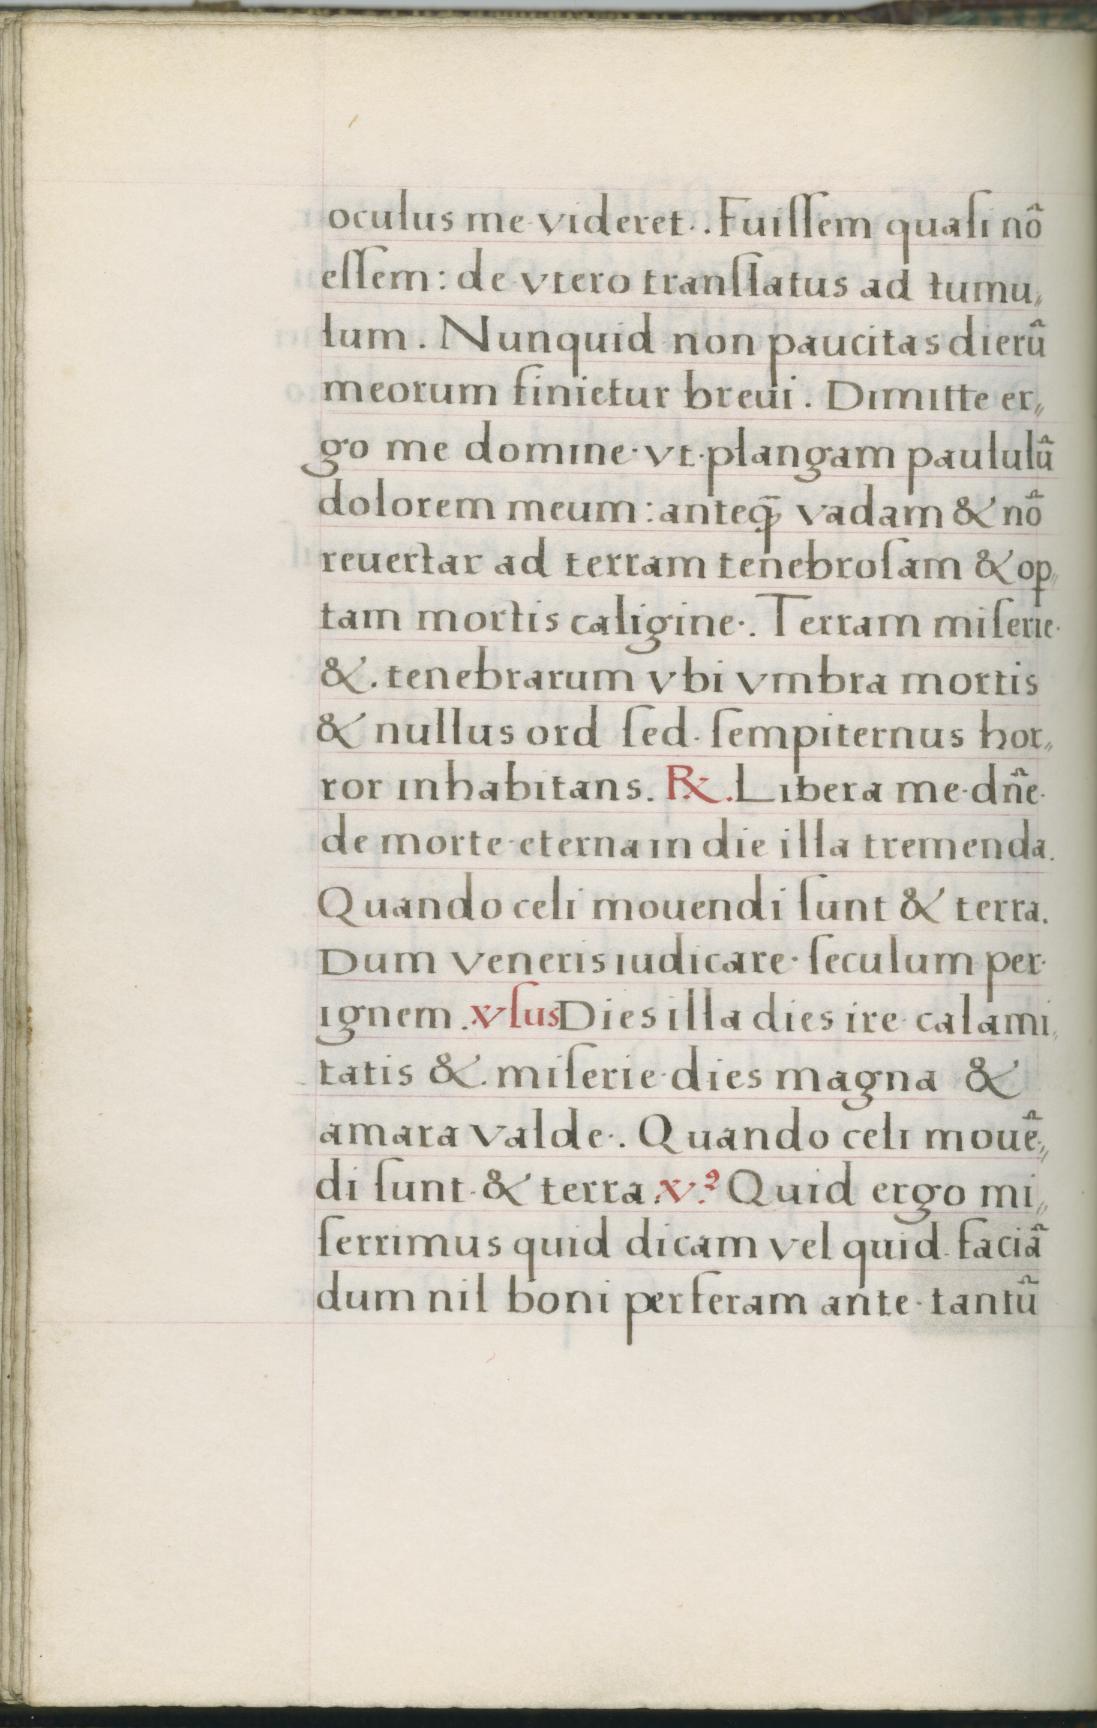 oculus me videret. . Fuiſſem quaſi nõ
eſſem : de vtero tranſlatus ad tumu,,
lum . Nunquid non paucitas dierũ
meorum finietur breui . Dimitte er,,
go me domine · vt · plangam paululũ
dolorem meum : anteq̃ vadam & nõ
reuertar ad terram tenebroſam & op,,
tam mortis caligine · . Terram miſerie ·
& . tenebrarum vbi vmbra mortis
& nullus ord ſed · ſempiternus hor,,
ror inhabitans . ℞ . Libera me · dñe ·
de morte · eterna in die illa tremenda .
Quando celi mouendi ſunt & terra .
Dum veneris iudicare · ſeculum per ·
ignem . vſus Dies illa dies ire · calami,,
tatis & . miſerie · dies magna &
amara valde · . Quando celi mouẽ,,
di ſunt · & terra . v.² Quid ergo mi,,
ſerrimus quid dicam vel quid · faciã
dum nil boni perferam ante · tantũ